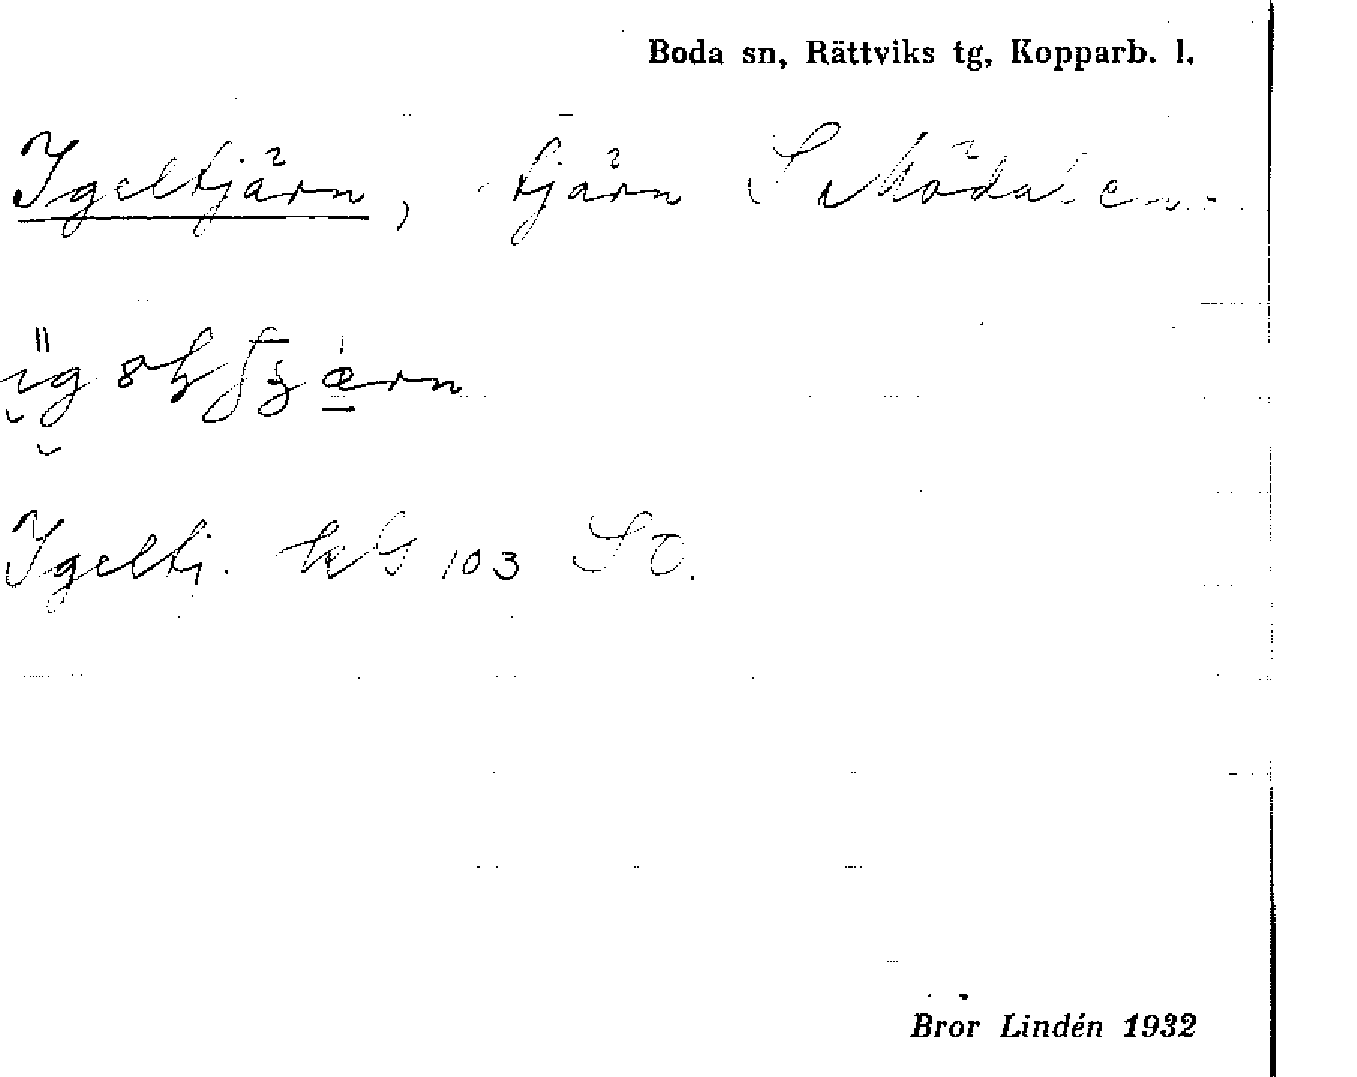 Boda sn, Rättviks tg, Kopparb. l.
Igeltjärn, tjärn S Mödalen.
Igeltj. kbl 103 SO.
Bror Lindén 1932